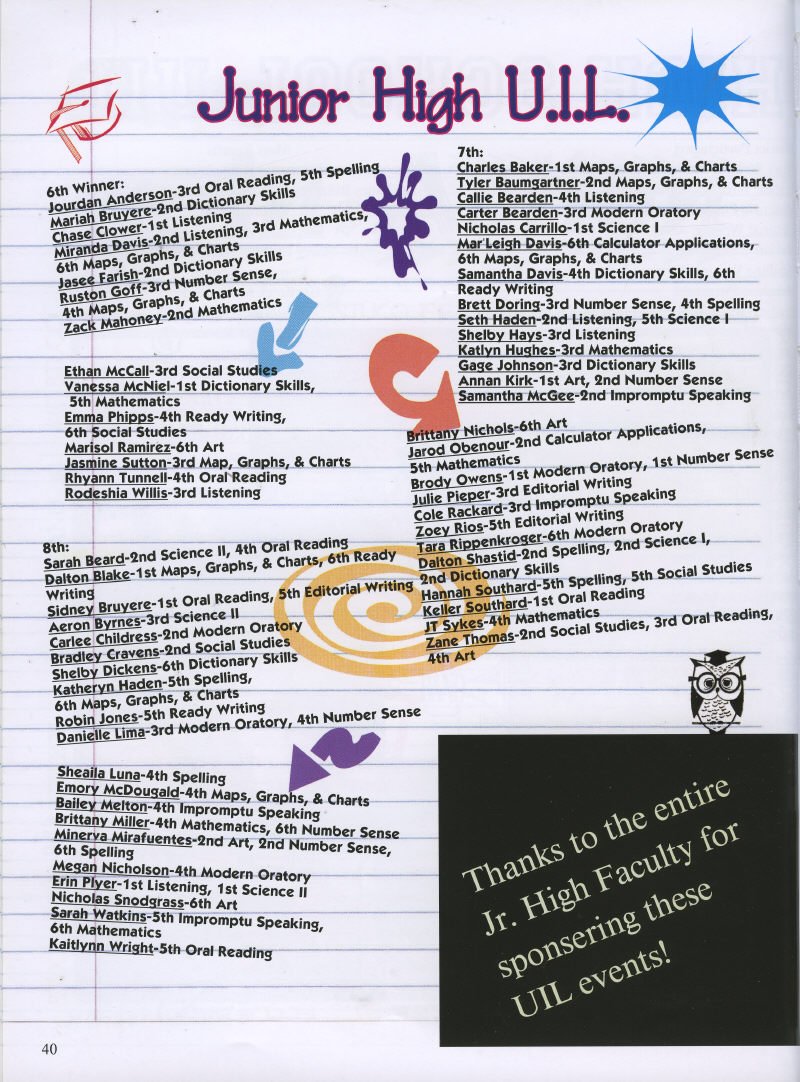 Junior High U.I.L.
6th Winner:
Jourdan Anderson-3rd Oral Reading, 5th Spelling
Mariah Bruyere-2nd Dictionary Skills
Chase Clower-1st Listening
Miranda Davis-2nd Listening, 3rd Mathematics,
6th Maps, Graphs, & Charts
Jasee Farish-2nd Dictionary Skills
Ruston Goff-3rd Number Sense,
4th Maps, Graphs, & Charts
Zack Mahoney-2nd Mathematics
Ethan McCall-3rd Social Studies
Vanessa McNiel-1st Dictionary Skills,
5th Mathematics
Emma Phipps-4th Ready Writing,
6th Social Studies
Marisol Ramirez-6th Art
Jasmine Sutton-3rd Map, Graphs, & Charts
Rhyann Tunnell-4th Oral Reading
Rodeshia Willis-3rd Listening
7th:
Charles Baker-1st Maps, Graphs, & Charts
Tyler Baumgartner-2nd Maps, Graphs, & Charts
Callie Bearden-4th Listening
Carter Bearden-3rd Modern Oratory
Nicholas Carrillo-1st Science I
Mar'Leigh Davis-6th Calculator Applications,
6th Maps, Graphs, & Charts
Samantha Davis-4th Dictionary Skills, 6th
Ready Writing
Brett Doring-3rd Number Sense, 4th Spelling
Seth Haden-2nd Listening, 5th Science I
Shelby Hays-3rd Listening
Katlyn Hughes-3rd Mathematics
Gage Johnson-3rd Dictionary Skills
Annan Kirk-1st Art, 2nd Number Sense
Samantha McGee-2nd Impromptu Speaking
Brittany Nichols-6th Art
Jarod Obenour-2nd Calculator Applications,
5th Mathematics
Brody Owens-1st Modern Oratory, 1st Number Sense
Julie Pieper-3rd Editorial Writing
Cole Rackard-3rd Impromptu Speaking
Zoey Rios-5th Editorial Writing
Tara Rippenkroger-6th Modern Oratory
Dalton Shastid-2nd Spelling, 2nd Science I,
2nd Dictionary Skills
Hannah Southard-5th Spelling, 5th Social Studies
Keller Southard-1st Oral Reading
JT Sykes-4th Mathematics
Zane Thomas-2nd Social Studies, 3rd Oral Reading,
4th Art
8th:
Sarah Beard-2nd Science II, 4th Oral Reading
Dalton Blake-1st Maps, Graphs, & Charts, 6th Ready
Writing
Sidney Bruyere-1st Oral Reading, 5th Editorial Writing
Aeron Byrnes-3rd Science II
Carlee Childress-2nd Modern Oratory
Bradley Cravens-2nd Social Studies
Shelby Dickens-6th Dictionary Skills
Katheryn Haden-5th Spelling,
6th Maps, Graphs, & Charts
Robin Jones-5th Ready Writing
Danielle Lima-3rd Modern Oratory, 4th Number Sense
Sheaila Luna-4th Spelling
Emory McDougald-4th Maps, Graphs, & Charts
Bailey Melton-4th Impromptu Speaking
Brittany Miller-4th Mathematics, 6th Number Sense
Minerva Mirafuentes-2nd Art, 2nd Number Sense,
6th Spelling
Megan Nicholson-4th Modern Oratory
Erin Plyer-1st Listening, 1st Science II
Nicholas Snodgrass-6th Art
Sarah Watkins-5th Impromptu Speaking,
6th Mathematics
Kaitlynn Wright-5th Oral Reading
Thanks to the entire
Jr. High Faculty for
sponsering these
UIL events!
40